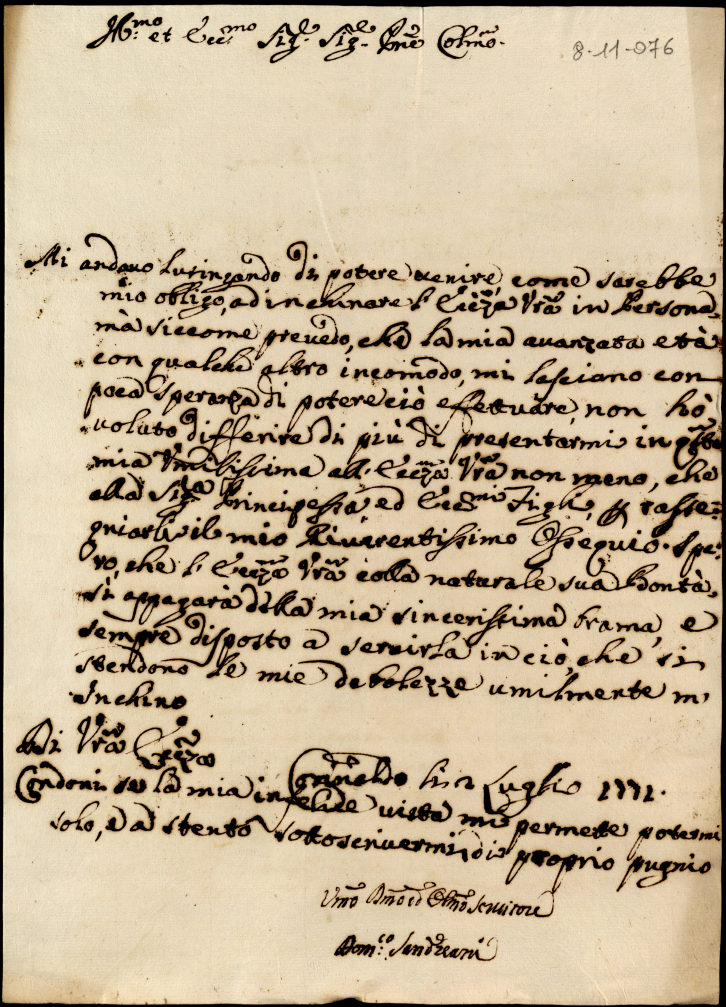 Ill.mo et Ecc.mo Sig.re Sig.re Pne Colmo.
8-11-076
Mi andavo lusingando di potere venire, come sarebbe
mio obligo, ad inchinare l'Eccza Vrã in Persona,
mà siccome prevedo, che la mia avanzata età
con qualche altro incomodo, mi lasciano con
poca speranza di potere ciò effettuare, non hò
voluto differire di più di presentarmi in qsta
mia Umilissima all'Eccza Vrã non meno, che
alla Sig.ra Principessa ed Ecc.mi Figli, p rasse=
gniarli il mio Riverentissimo Ossequio. Spe=
ro, che l'Eccza Vrã colla naturale sua Bontà,
si appagarà della mia sincerissima brama, e
sempre disposto a servirla in ciò, che si
stendono le mie debolezze umilmente m'
Inchino
Di Vrã Eccza
Corinaldo li 2 Luglio 1771.
Condoni se la mia infelice vista mi permette potermi
solo, e a stento sottoscrivermi di proprio pugnio
Umo Dmo ed Obmo Servitore
Dom.co